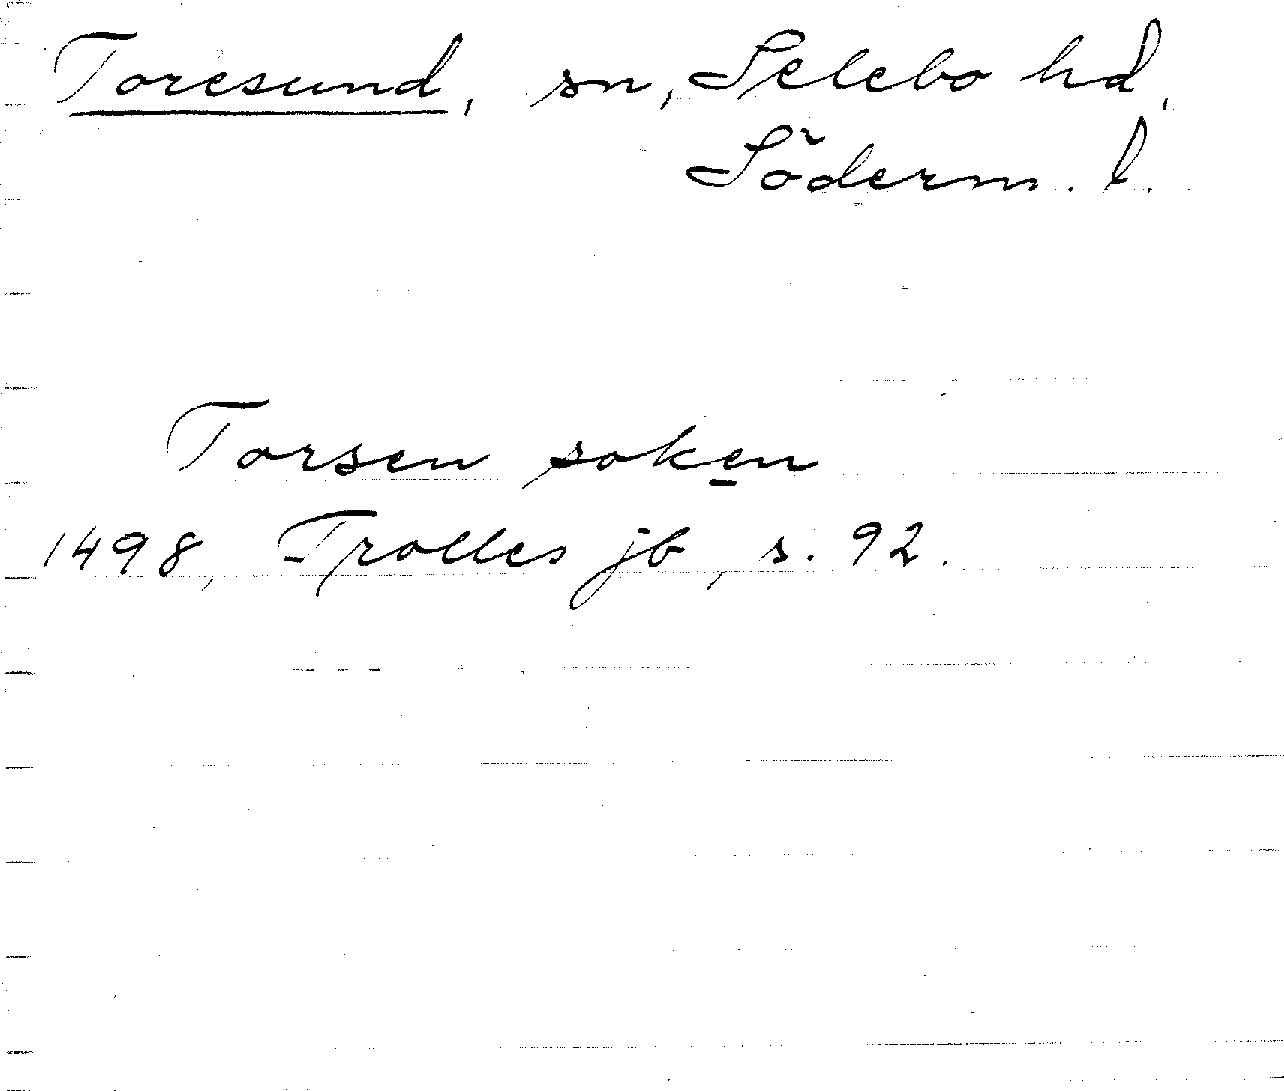 Toresund, sn, Selebo hd,
Söderm. l.
Torsen soken
1498, Trolles jb, s. 92.